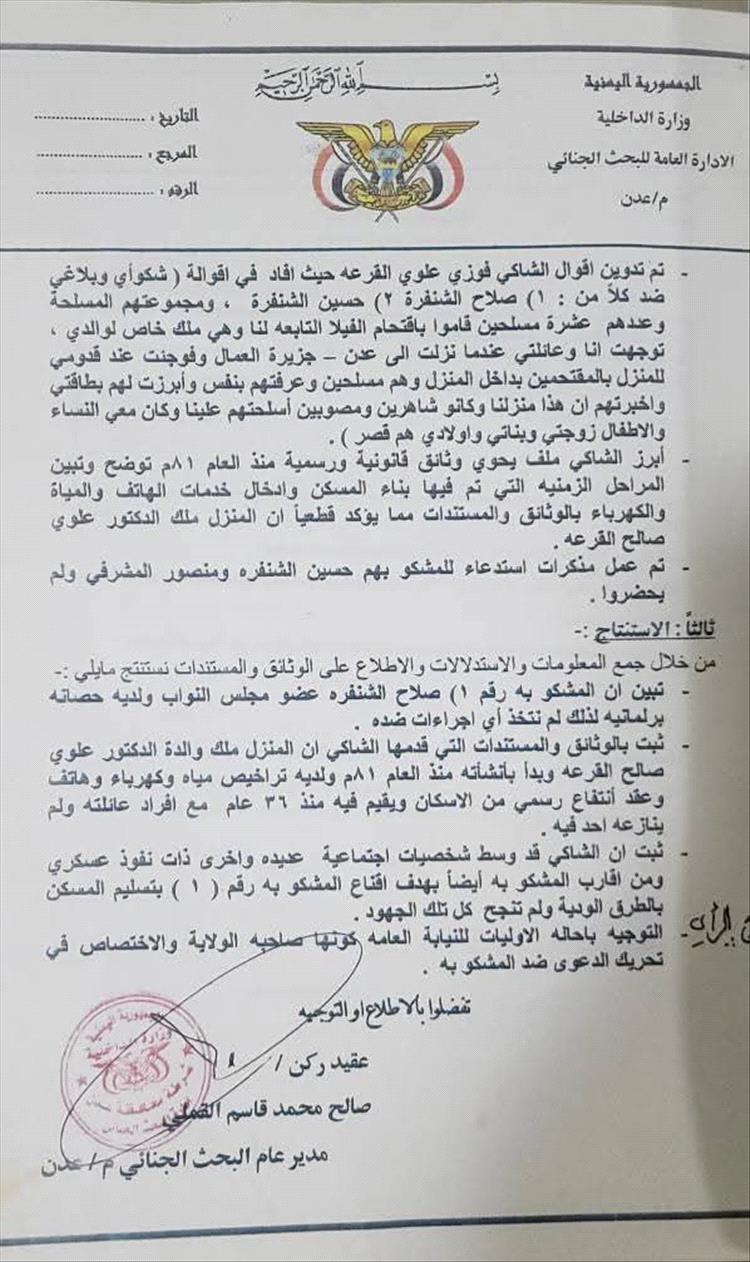 بسم الله الرحمن الرحيم
الجمهورية اليمنية
وزارة الداخلية
الادارة العامة للبحث الجنائي
م/عدن
التاريخ : ........................
المرجع : ........................
الرقم : ........................
- تم تدوين اقوال الشاكي فوزي علوي القرعه حيث افاد في اقوالة ( شكوأي وبلاغي
ضد كلاً من : ١) صلاح الشنفرة ٢) حسين الشنفرة ، ومجموعتهم المسلحة
وعددهم عشرة مسلحين قاموا بإقتحام الفيلا التابعه لنا وهي ملك خاص لوالدي ،
توجهت انا وعائلتي عندما نزلت الى عدن – جزيرة العمال وفوجئت عند قدومي
للمنزل بالمقتحمين بداخل المنزل وهم مسلحين وعرفتهم بنفس وأبرزت لهم بطاقتي
واخبرتهم ان هذا منزلنا وكانو شاهرين ومصوبين أسلحتهم علينا وكان معي النساء
والاطفال زوجتي وبناتي واولادي هم قصر ) .
- أبرز الشاكي ملف يحوي وثائق قانونية ورسمية منذ العام ٨١م توضح وتبين
المراحل الزمنيه التي تم فيها بناء المسكن وادخال خدمات الهاتف والمياة
والكهرباء بالوثائق والمستندات مما يؤكد قطعياً ان المنزل ملك الدكتور علوي
صالح القرعه .
- تم عمل مذكرات استدعاء للمشكو بهم حسين الشنفره ومنصور المشرفي ولم
يحضروا .
ثالثاً : الاستنتاج :-
من خلال جمع المعلومات والاستدلالات والاطلاع على الوثائق والمستندات نستنتج مايلي :-
- تبين ان المشكو به رقم ١) صلاح الشنفره عضو مجلس النواب ولديه حصانه
برلمانيه لذلك لم نتخذ أي اجراءات ضده .
- ثبت بالوثائق والمستندات التي قدمها الشاكي ان المنزل ملك والدة الدكتور علوي
صالح القرعه وبدأ بأنشأته منذ العام ٨١م ولديه تراخيص مياه وكهرباء وهاتف
وعقد أنتفاع رسمي من الاسكان ويقيم فيه منذ ٣٦ عام مع افراد عائلته ولم
ينازعه احد فيه .
- ثبت ان الشاكي قد وسط شخصيات اجتماعية عديده واخرى ذات نفوذ عسكري
ومن اقارب المشكو به أيضاً بهدف اقناع المشكو به رقم ( ١ ) بتسليم المسكن
بالطرق الودية ولم تنجح كل تلك الجهود .
- التوجيه باحاله الاوليات للنيابة العامه كونها صاحبه الولاية والاختصاص في
تحريك الدعوى ضد المشكو به .
تفضلوا بالاطلاع او التوجيه
عقيد ركن /
صالح محمد قاسم القملي
مدير عام البحث الجنائي م/عدن